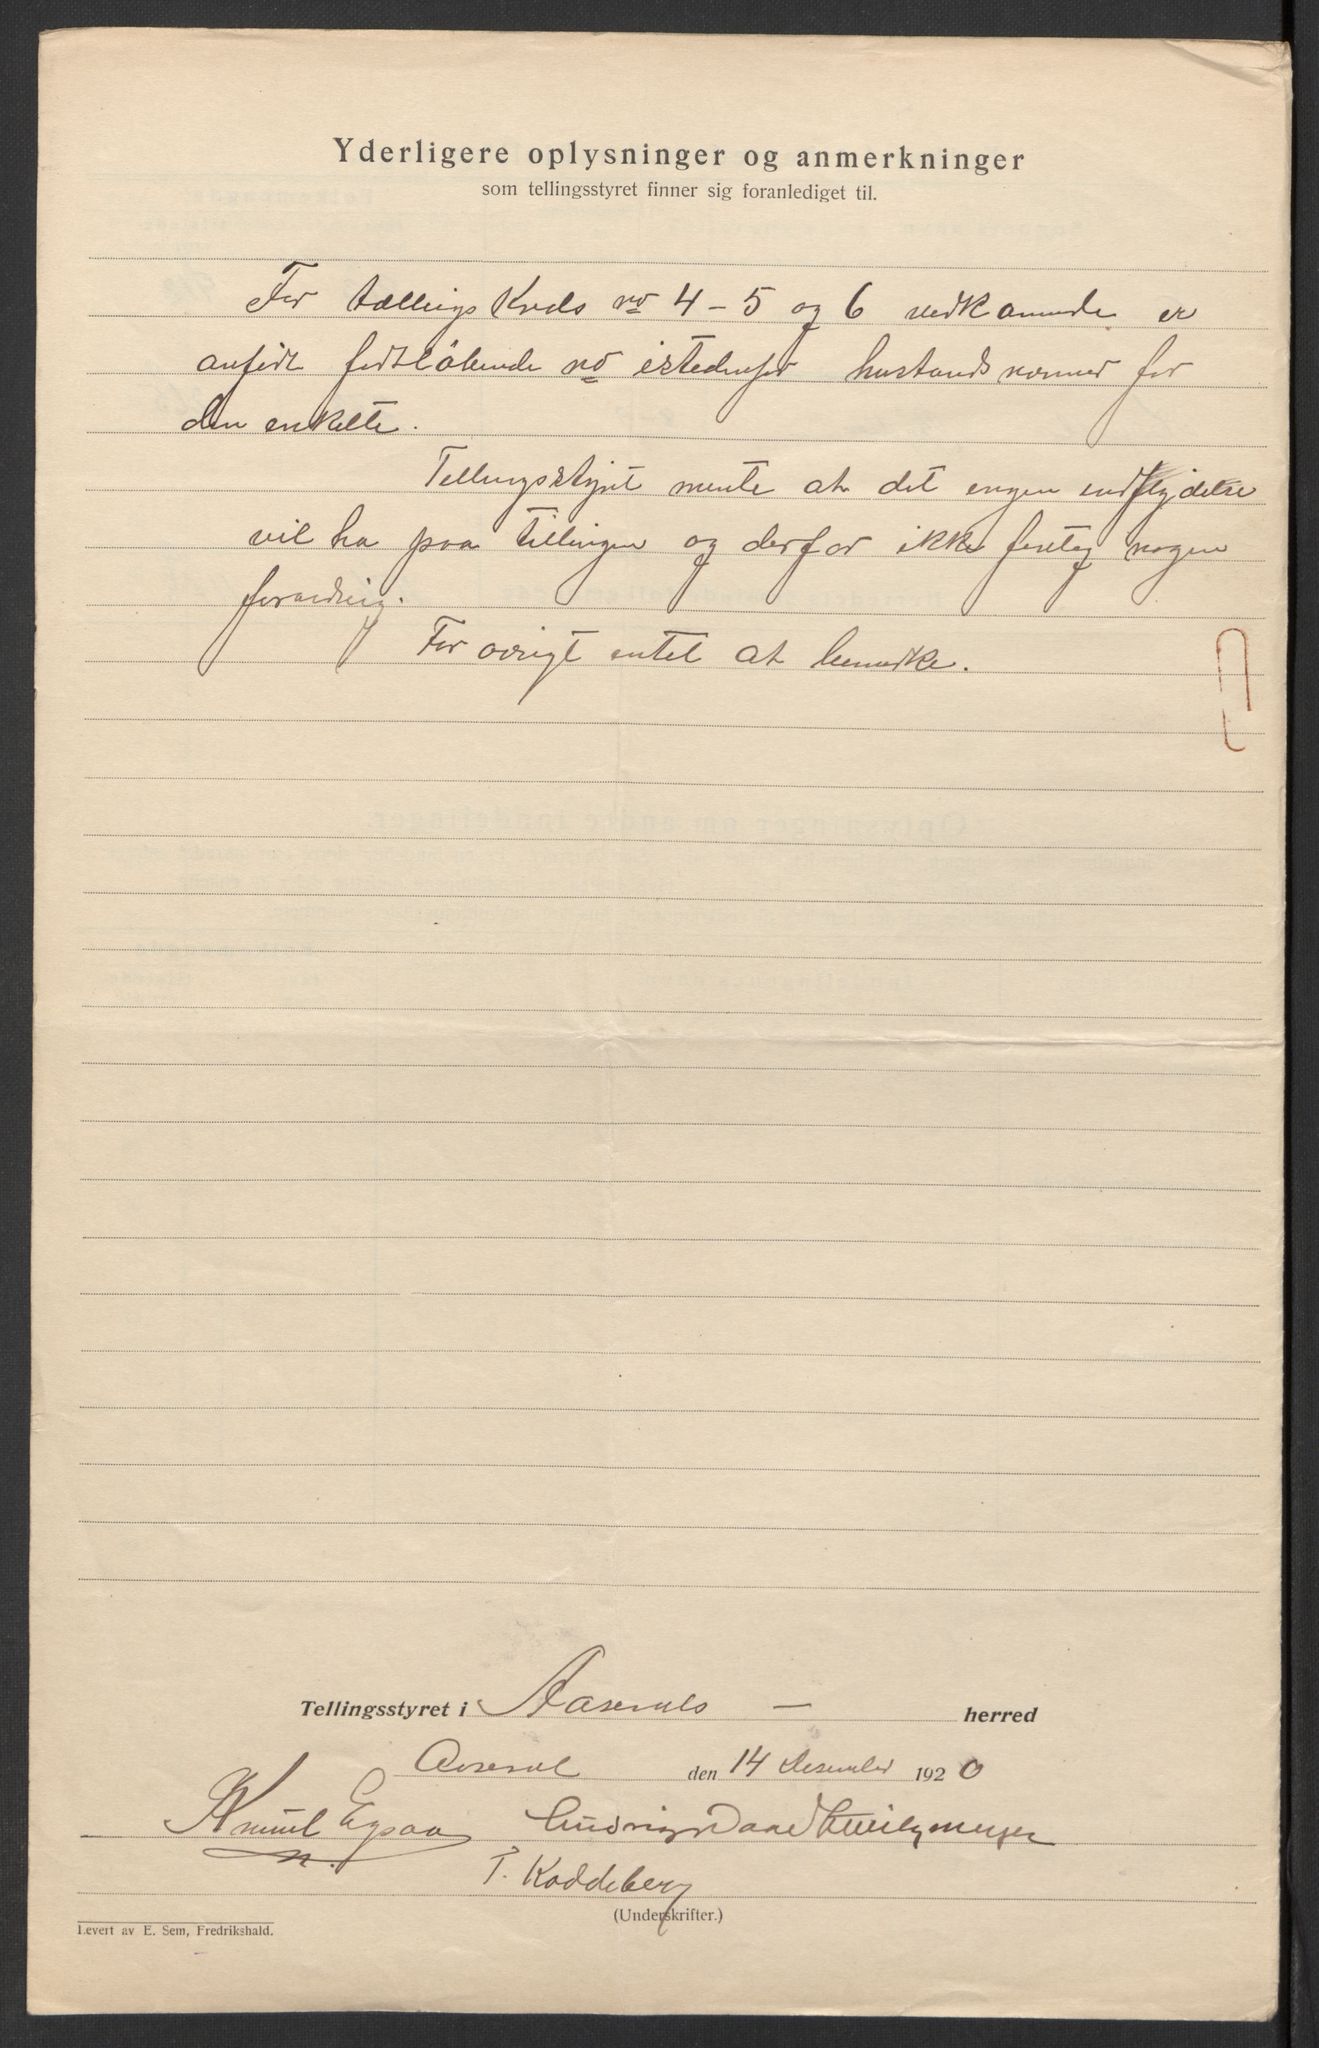 Yderligere oplysninger og anmerkninger
som tellingsstyret finner sig foranlediget til.
For tællings Kreds no 4 - 5 og 6 vedkommende er
anført fortløbende no istedenfor hustands nommer for
den enkelte.
Tellingsstyret mente at det ingen indflydelse
vil ha paa tellingen og derfor ikke foretog nogen
forandring.
For øvrigt intet at bemerke.
Tellingsstyret i Aaseral's — herred
Aaseral den 14 desember 1920
Knut Egsaa
T. Koddeberg
(Underskrifter.)
Levert av E. Sem, Fredrikshald.